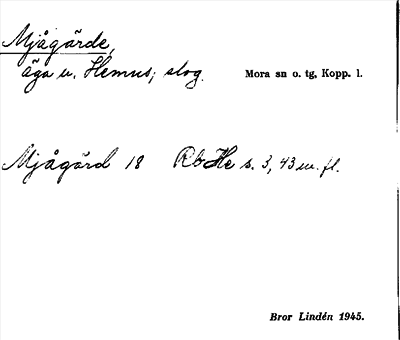 Mjågärde,
äga u. Hemus; slog. Mora sn o. tg, Kopp. l.
Mjågärd 18 Rb He s. 3, 43 m. fl.
Bror Lindén 1945.